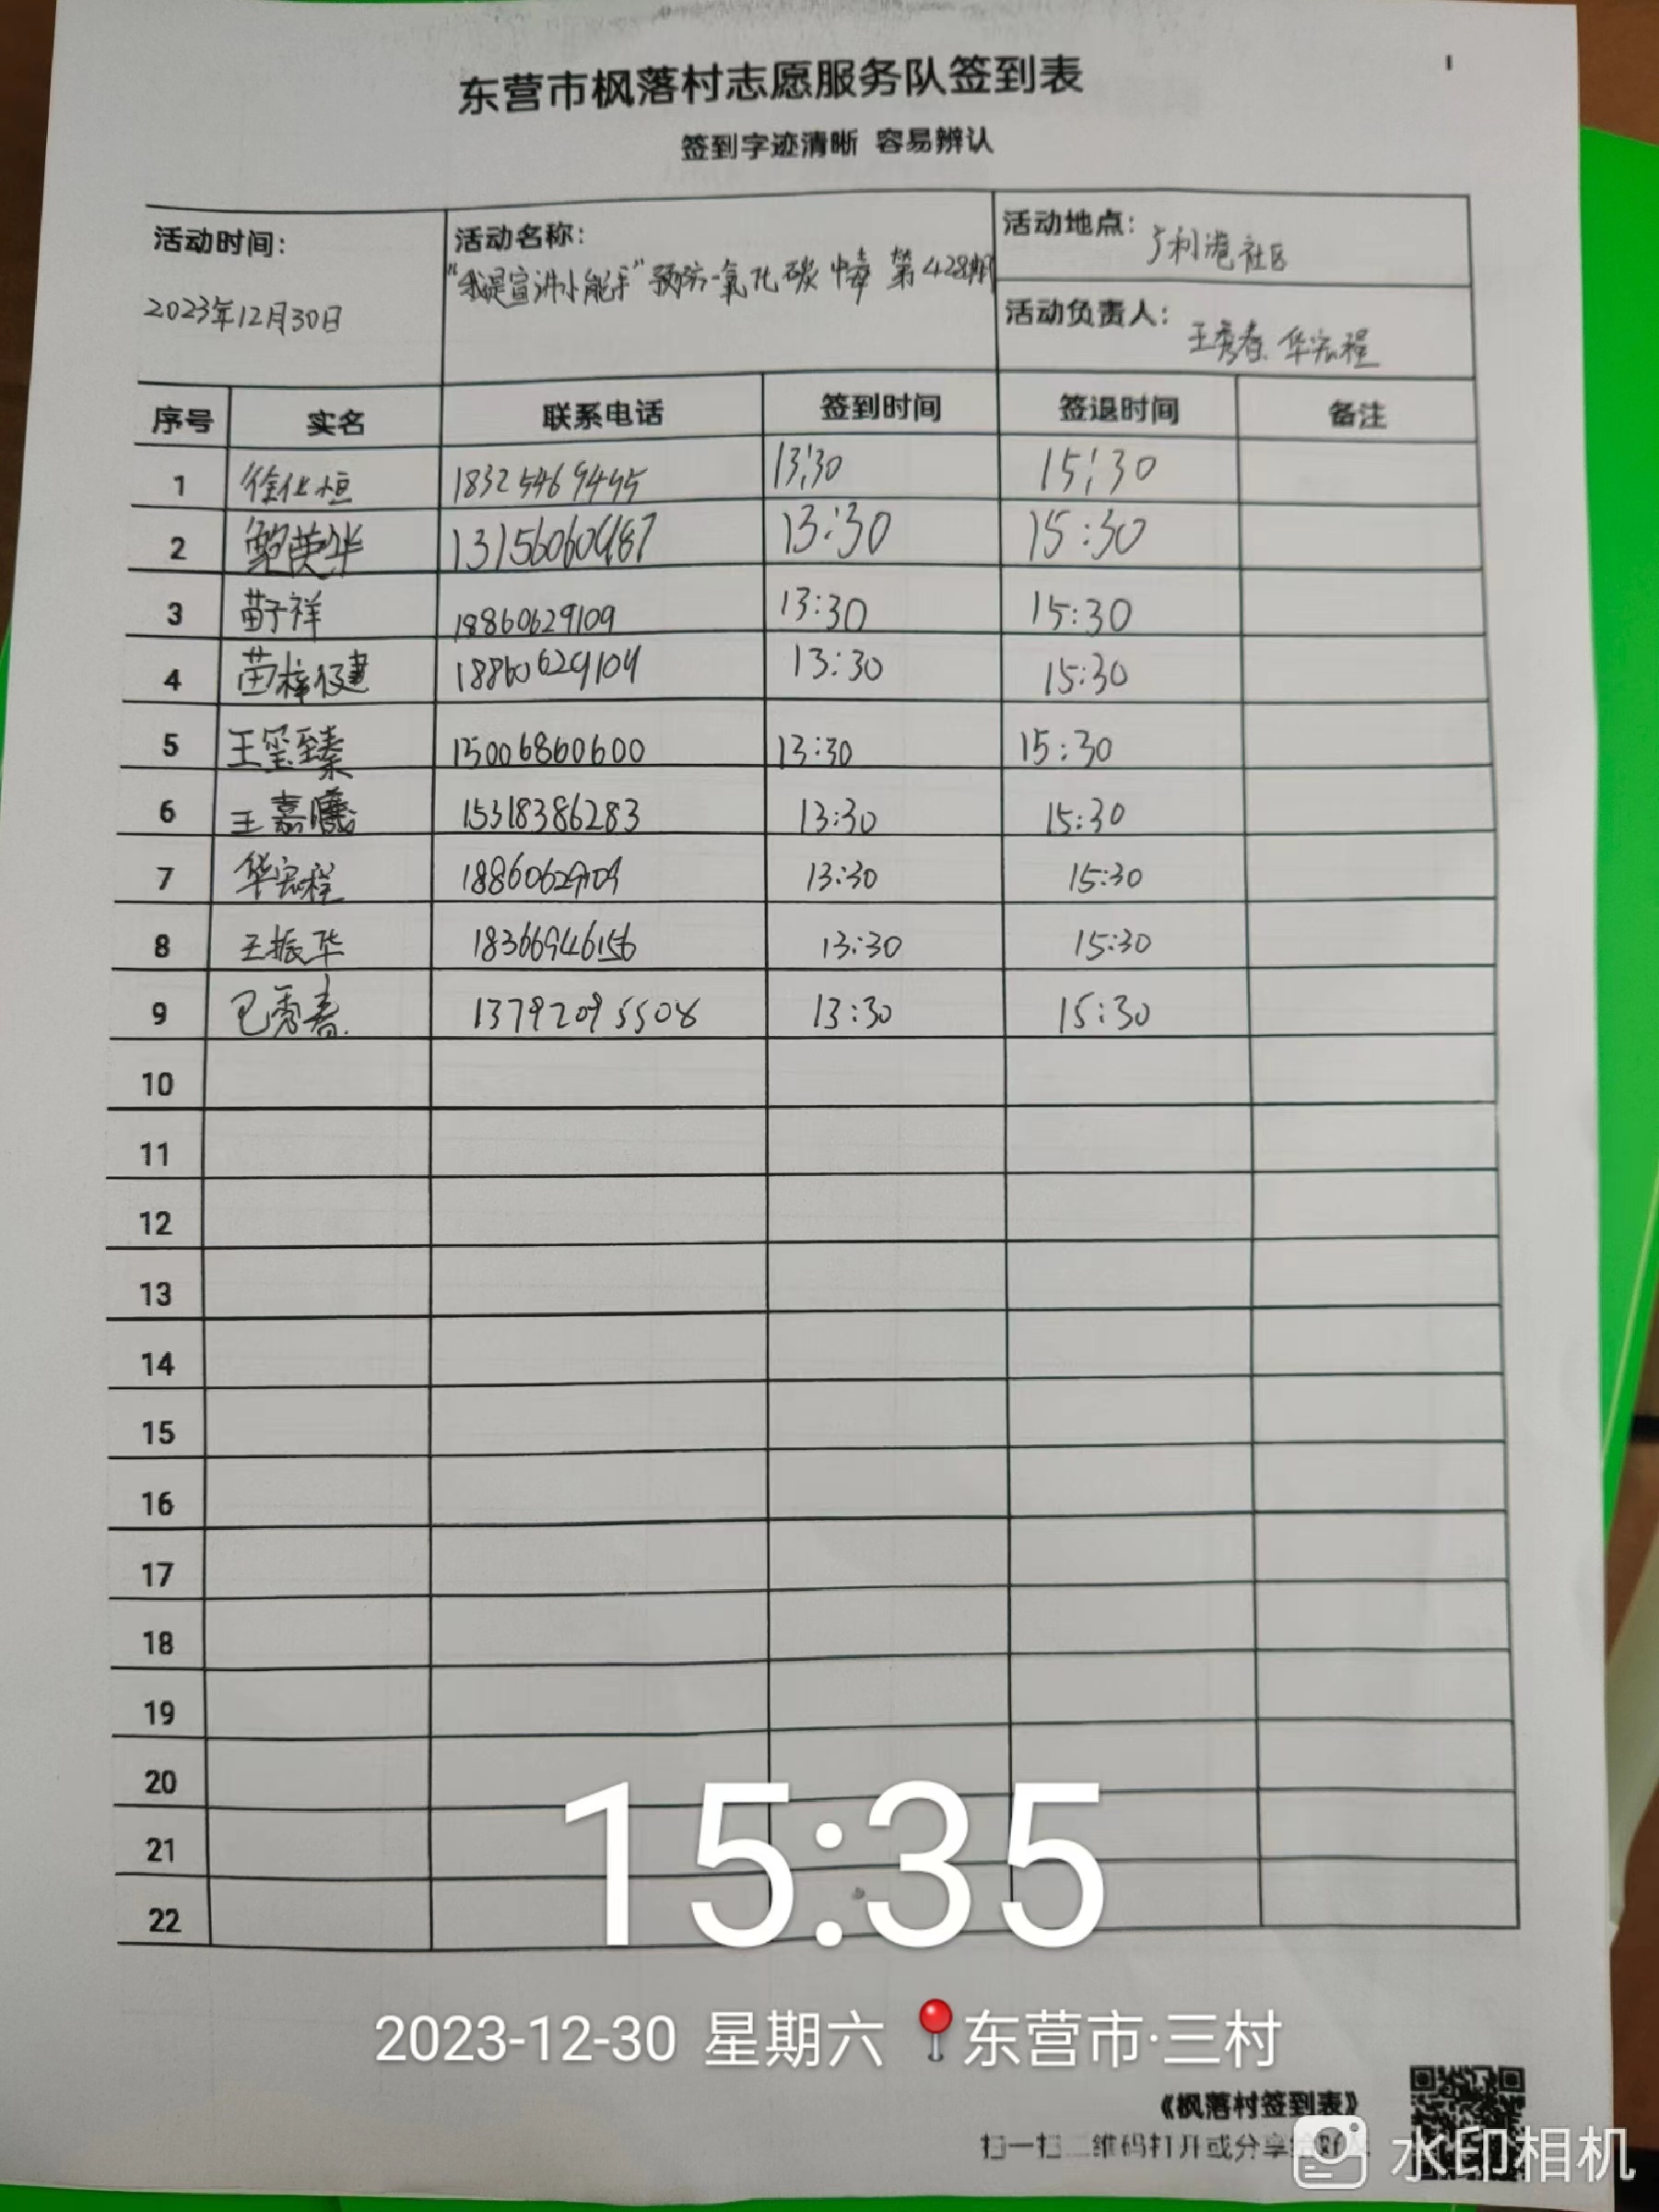 东营市枫落村志愿服务队签到表
签到字迹清晰 容易辨认
活动时间：
2023年12月30日
活动名称：
“我是宣讲小能手”预防一氧化碳中毒 第428期
活动地点： 广利港社区
活动负责人： 王秀春 华宏程
序号 实名 联系电话 签到时间 签退时间 备注
1 徐化恒 13:30 15:30
2 鲍黄华 13:30 15:30
3 苗子祥 18860629109 13:30 15:30
4 苗梓健 18860629109 13:30 15:30
5 王玺臻 15006860600 13:30 15:30
6 王嘉 15318386283 13:30 15:30
7 华宏程 18860629109 13:30 15:30
8 王振华 18366946156 13:30 15:30
9 秀春 13792095508 13:30 15:30
10
11
12
13
14
15
16
17
18
19
20
21
22
15:35
2023-12-30 星期六 东营市·三村
《枫落村签到表》
扫一扫二维码打开或分享给
水印相机